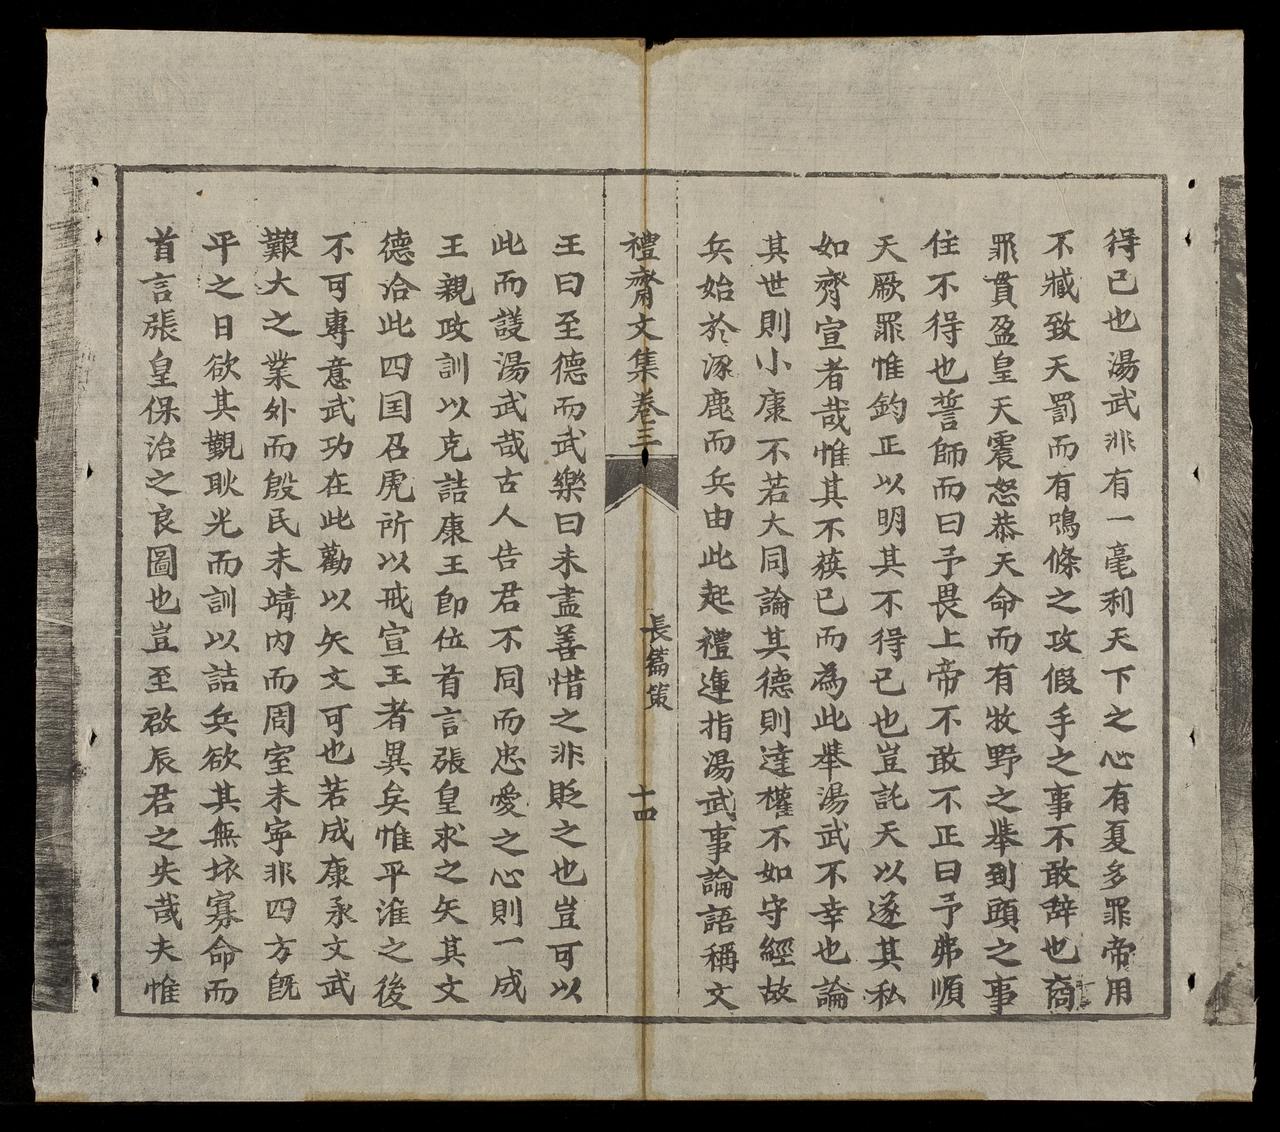 得已也湯武非有一毫利天下之心有夏多罪帝用
不臧致天罰而有鳴條之攻假手之事不敢辞也商
罪貫盈皇天震怒恭天命而有牧野之舉到頭之事
住不得也誓師而曰予畏上帝不敢不正曰予弗順
天厥罪惟鈞正以明其不得已也豈託天以遂其私
如齊宣者哉惟其不獲已而為此舉湯武不幸也論
其世則小康不若大同論其德則達權不如守經故
兵始於涿鹿而兵由此起禮運指湯武事論語稱文
禮齋文集卷三
長篇策
十四
王曰至德而武樂曰未盡善惜之非貶之也豈可以
此而議湯武哉古人告君不同而忠愛之心則一成
王親政訓以克詰康王卽位首言張皇求之矢其文
德洽此四国召虎所以戒宣王者異矣惟平淮之後
不可專意武功在此勸以矢文可也若成康承文武
艱大之業外而殷民未靖内而周室未寜非四方旣
平之日欲其覲耿光而訓以詰兵欲其無坏寡命而
首言張皇保治之良圖也豈至啟辰君之失哉夫惟